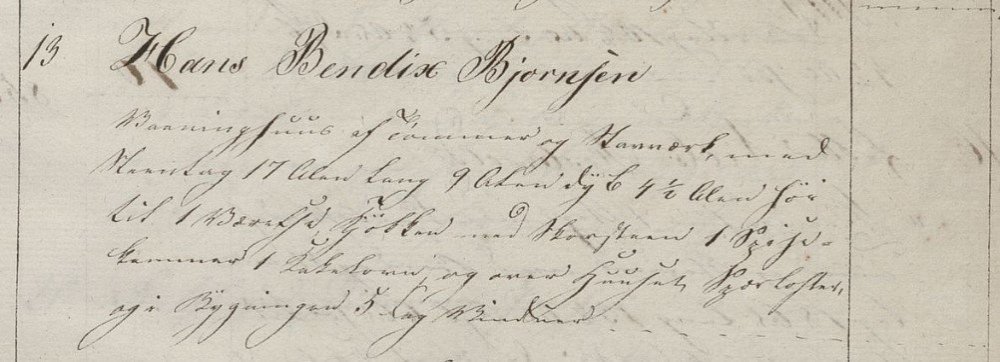 13 Hans Bendix Bjornsen
Vaaninghuus af Tømmer og Stavværk, med
Steentag 17 Alen lang 9 Alen dyb 4 1/2 Alen høi
til 1 Værelse, Kjøkken med Skorsteen 1 Spise-
kammer 1 Kakelovn, og over Huuset Spærlofter,
og i Bygningen 5 fag Vinduer